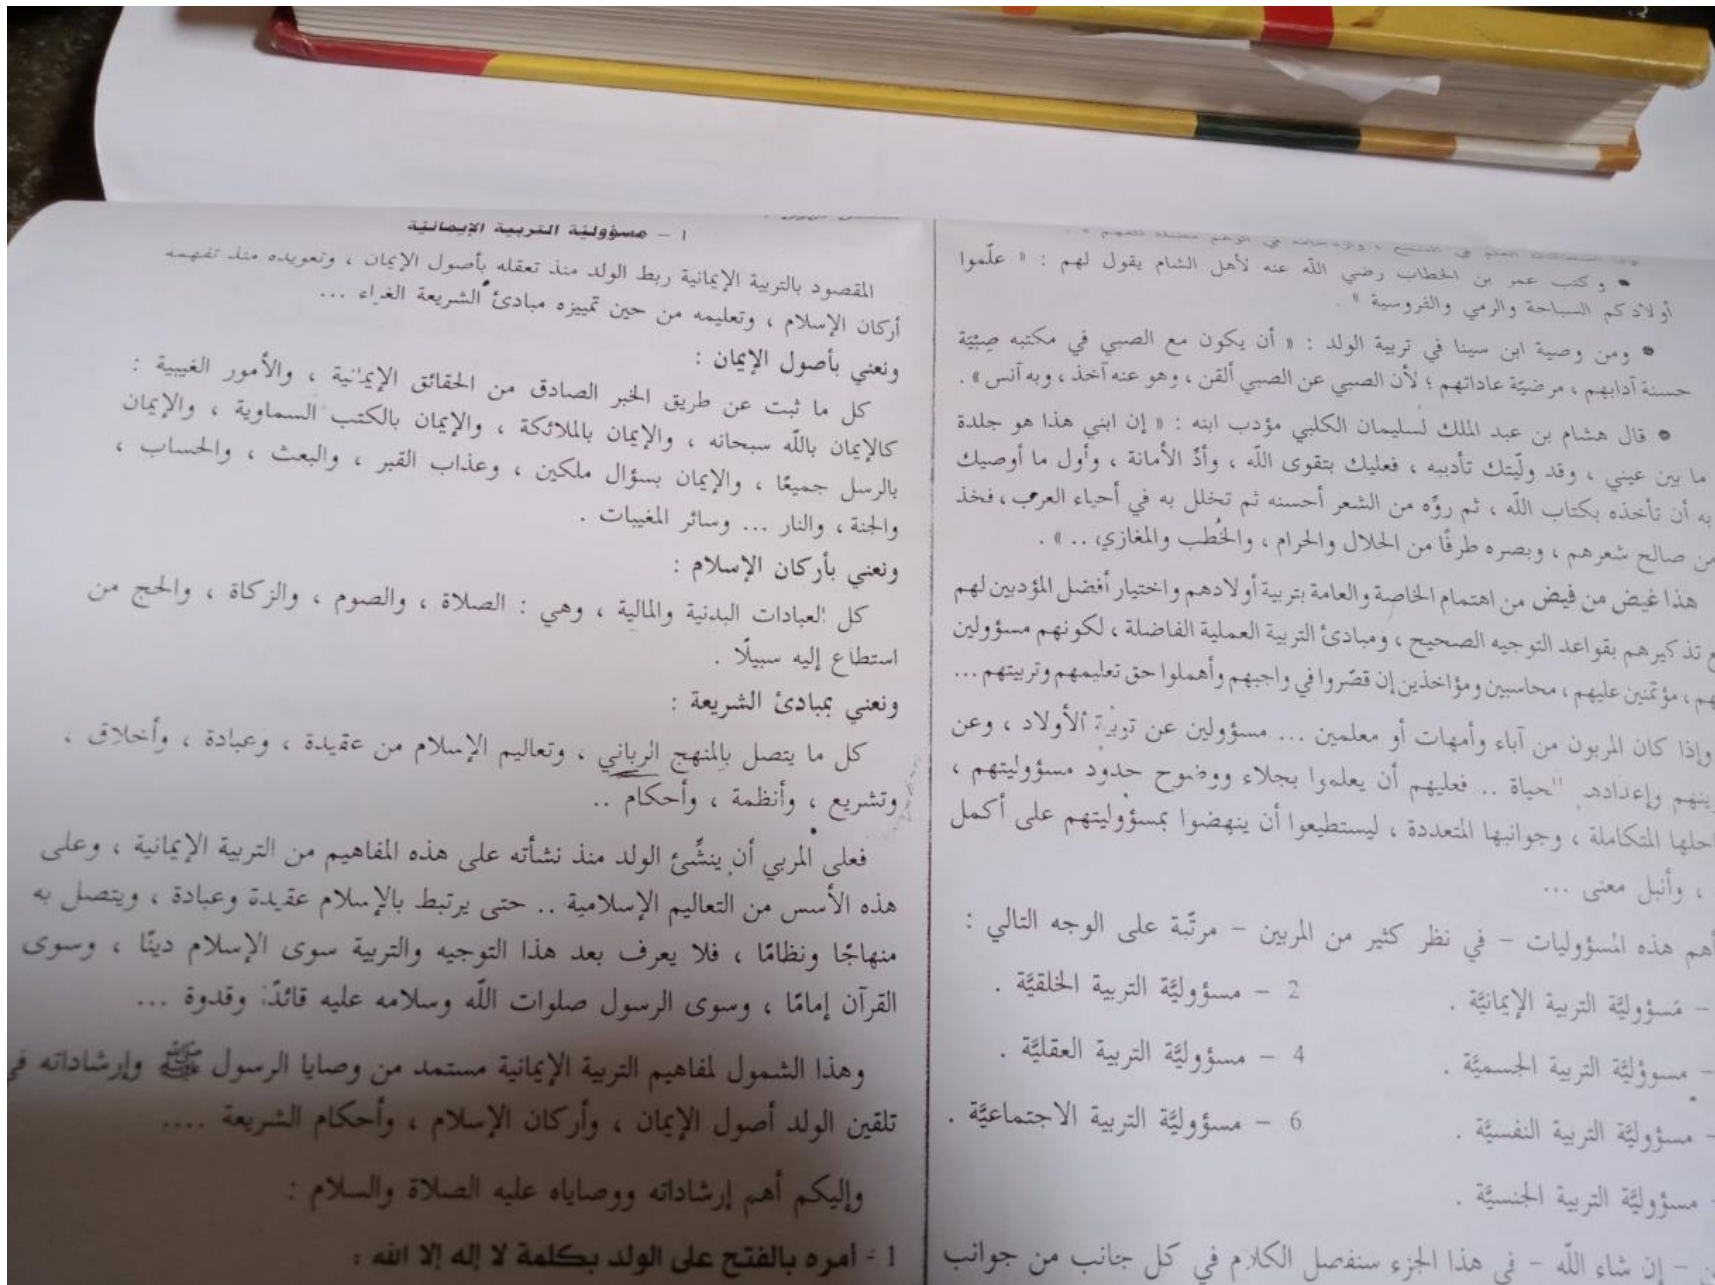 • وكتب عمر بن الخطاب رضي الله عنه لأهل الشام يقول لهم : « علّموا
أولادكم السباحة والرمي والفروسية » .
• ومن وصية ابن سينا في تربية الولد : « أن يكون مع الصبي في مكتبه صِبْيَة
حسنة آدابهم ، مرضيّة عاداتهم ؛ لأن الصبي عن الصبي ألقن ، وهو عنه آخذ ، وبه آنس » .
• قال هشام بن عبد الملك لسليمان الكلبي مؤدب ابنه : « إن ابني هذا هو جلدة
ما بين عيني ، وقد ولّيتك تأديبه ، فعليك بتقوى الله ، وأدِّ الأمانة ، وأول ما أوصيك
به أن تأخذه بكتاب الله ، ثم روِّه من الشعر أحسنه ثم تخلل به في أحياء العرب ، فخذ
من صالح شعرهم ، وبصره طرفًا من الحلال والحرام ، والخُطب والمغازي .. » .
هذا غيض من فيض من اهتمام الخاصة والعامة بتربية أولادهم واختيار أفضل المؤدبين لهم
تذكيرهم بقواعد التوجيه الصحيح ، ومبادئ التربية العملية الفاضلة ، لكونهم مسؤولين
، مؤتمنين عليهم ، محاسبين ومؤاخذين إن قصّروا في واجبهم وأهملوا حق تعليمهم وتربيتهم ...
وإذا كان المربون من آباء وأمهات أو معلمين ... مسؤولين عن تربية الأولاد ، وعن
وإعدادهم للحياة .. فعليهم أن يعلموا بجلاء ووضوح حدود مسؤوليتهم ،
المتكاملة ، وجوانبها المتعددة ، ليستطيعوا أن ينهضوا بمسؤوليتهم على أكمل
، وأنبل معنى ...
أهم هذه المسؤوليات – في نظر كثير من المربين – مرتّبة على الوجه التالي :
– مَسؤوليَّة التربية الإيمانيَّة . 2 – مسؤوليَّة التربية الخلقيَّة .
– مسوؤليَّة التربية الجسميَّة . 4 – مسؤوليَّة التربية العقليَّة .
– مسؤوليَّة التربية النفسيَّة . 6 – مسؤوليَّة التربية الاجتماعيَّة .
– مسؤوليَّة التربية الجنسيَّة .
– إن شاء الله – في هذا الجزء سنفصل الكلام في كل جانب من جوانب
1 – مسؤولية التربية الإيمانية
المقصود بالتربية الإيمانية ربط الولد منذ تعقله بأصول الإيمان ، وتعويده منذ تفهمه
أركان الإسلام ، وتعليمه من حين تمييزه مبادئ الشريعة الغراء ...
ونعني بأصول الإيمان :
كل ما ثبت عن طريق الخبر الصادق من الحقائق الإيمانية ، والأمور الغيبية :
كالإيمان بالله سبحانه ، والإيمان بالملائكة ، والإيمان بالكتب السماوية ، والإيمان
بالرسل جميعًا ، والإيمان بسؤال ملكين ، وعذاب القبر ، والبعث ، والحساب ،
والجنة ، والنار ... وسائر المغيبات .
ونعني بأركان الإسلام :
كل العبادات البدنية والمالية ، وهي : الصلاة ، والصوم ، والزكاة ، والحج من
استطاع إليه سبيلًا .
ونعني بمبادئ الشريعة :
كل ما يتصل بالمنهج الرباني ، وتعاليم الإسلام من عقيدة ، وعبادة ، وأخلاق ،
وتشريع ، وأنظمة ، وأحكام ..
فعلى المربي أن ينشِّئ الولد منذ نشأته على هذه المفاهيم من التربية الإيمانية ، وعلى
هذه الأسس من التعاليم الإسلامية .. حتى يرتبط بالإسلام عقيدة وعبادة ، ويتصل به
منهاجًا ونظامًا ، فلا يعرف بعد هذا التوجيه والتربية سوى الإسلام دينًا ، وسوى
القرآن إمامًا ، وسوى الرسول صلوات الله وسلامه عليه قائدًا وقدوة ...
وهذا الشمول لمفاهيم التربية الإيمانية مستمد من وصايا الرسول ﷺ وإرشاداته في
تلقين الولد أصول الإيمان ، وأركان الإسلام ، وأحكام الشريعة ....
وإليكم أهم إرشاداته ووصاياه عليه الصلاة والسلام :
1 - أمره بالفتح على الولد بكلمة لا إله إلا الله :